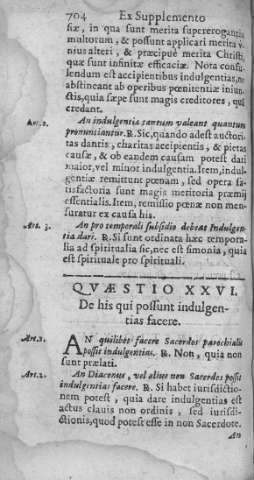 704 Ex Supplemento
siæ, in qua sunt merita supererogantia
multorum, & possunt applicari merita v-
nius alteri, & præcipuè merita Christi,
quæ sunt infinitæ efficaciæ. Nota consu-
lendum est accipientibus indulgentias, ne
abstineant ab operibus pœnitentiæ iniun-
ctis, quia sæpe sunt magis creditores, quã
credant.
Art. 2. An indulgentia tantum valeant quantum
pronunciantur. R. Sic, quando adest auctori-
tas dantis, charitas accipientis, & pietas
causæ, & ob eandem causam potest dari
maior, vel minor indulgentia. Item, indul-
gentiæ remittunt pœnam, sed opera sa-
tisfactoria sunt magis meritoria præmij
essentialis. Item, remissio pœnæ non men-
suratur ex causa his.
Art. 3. An pro temporali subsidio debeat Indulgen-
tia dari. R. Si sunt ordinata hæc tempora-
lia ad spiritualia sic, nec est simonia, quia
est spirituale pro spirituali.
QVÆSTIO XXVI.
De his qui possunt indulgen-
tias facere.
Art. 1. AN quilibet facere Sacerdos parochialis
possit indulgentias. R. Non, quia non
sunt prælati.
Art. 2. An Diaconus, vel alius non Sacerdos possit
indulgentias facere. R. Si habet iurisdictio-
nem potest, quia dare indulgentias est
actus clauis non ordinis, sed iurisdi-
ctionis, quod potest esse in non Sacerdote.
An